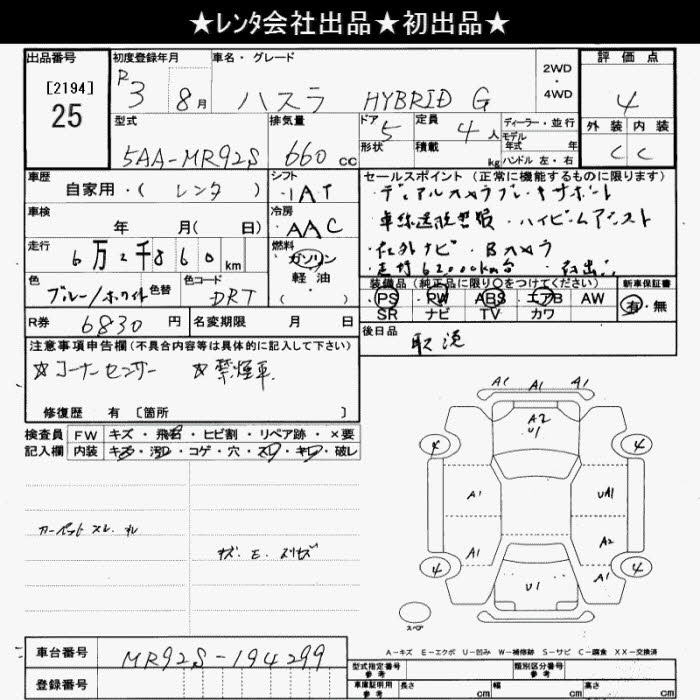 ★レンタ会社出品★初出品★
出品番号 初度登録年月 車名・グレード 2WD・4WD 評価点
[2194]
25
R3 8月 ハスラ HYBRID G 4
型式 排気量 ドア 定員 ディーラー・並行 外装 内装
5AA-MR92S 660cc 5 4人 モデル年式 年 C C
形状 積載 kg ハンドル 左・右
車歴 シフト セールスポイント(正常に機能するものに限ります)
自家用・(レンタ) IAT ・デュアルカメラブレーキサポート
車検 冷房 ・車線逸脱警報・ハイビームアシスト
年 月( 日) AAC ・社外ナビ・Bカメラ
走行 燃料 ・走行62000km台
6万2千860km ガソリン
軽油
( )
色 色替 色コード 装備品(純正品に限り○をつけてください) 新車保証書
ブルー/ホワイト DRT PS PW ABS エアB AW 有・無
SR ナビ TV カワ
R券 6830円 名変期限 月 日 後日品 取説
注意事項申告欄(不具合内容等は具体的に記入して下さい)
☆コーナーセンサー ☆禁煙車
修復歴 有 [箇所 ]
検査員記入欄 FW キズ・飛石・ヒビ割・リペア跡・×要
内装 キズ・汚れ・コゲ・穴・スレ・キレ・破レ
カーペットスレ キレ
キズ E スリキズ
A1 A1 A1
A2
U1
4 4
A1 UA1
A2
A1 A1
4 4
U1
スペア
A-キズ E-エクボ U-凹み W-補修跡 S-サビ C-腐食 XX-交換済
車台番号 MR92S-194299
登録番号
型式指定番号 参考 類別区分番号 参考
車庫証明用 参考 長さ cm 幅 cm 高さ cm